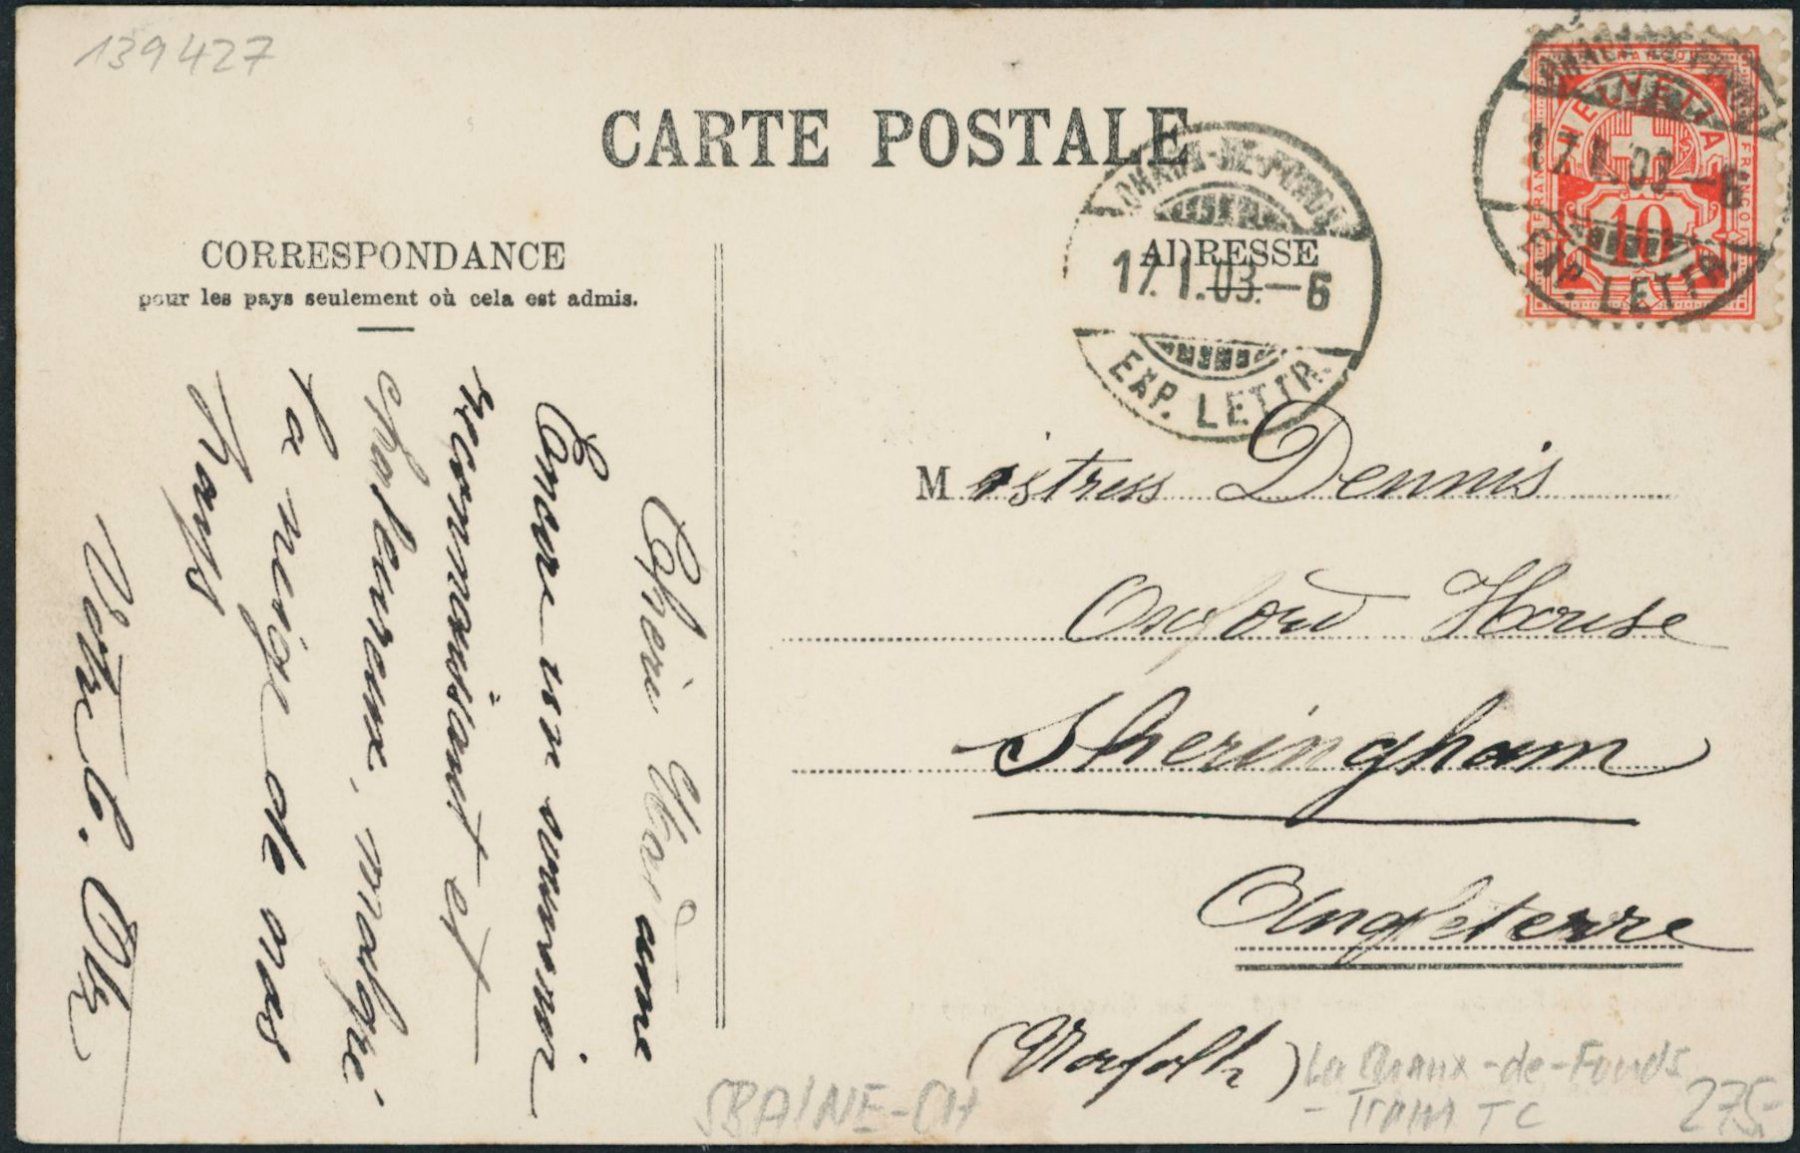 139427
CARTE POSTALE
CORRESPONDANCE
pour les pays seulement où cela est admis.
ADRESSE
CHAUX-DE-FONDS
17.I.03.—6
EXP. LETTR.
FRANCO
HELVETIA
10
17.I.03—6
EXP. LETTR.
Mistress Dennis
Oxford House
Sheringham
Angleterre
(Norfolk)
Chère Madame
Encore un souvenir
reconnaissant et
chaleureux, malgré
la neige de nos
Votre C. Ott
SBAINE-CH
La Chaux-de-Fonds
- Tram TC
275.-